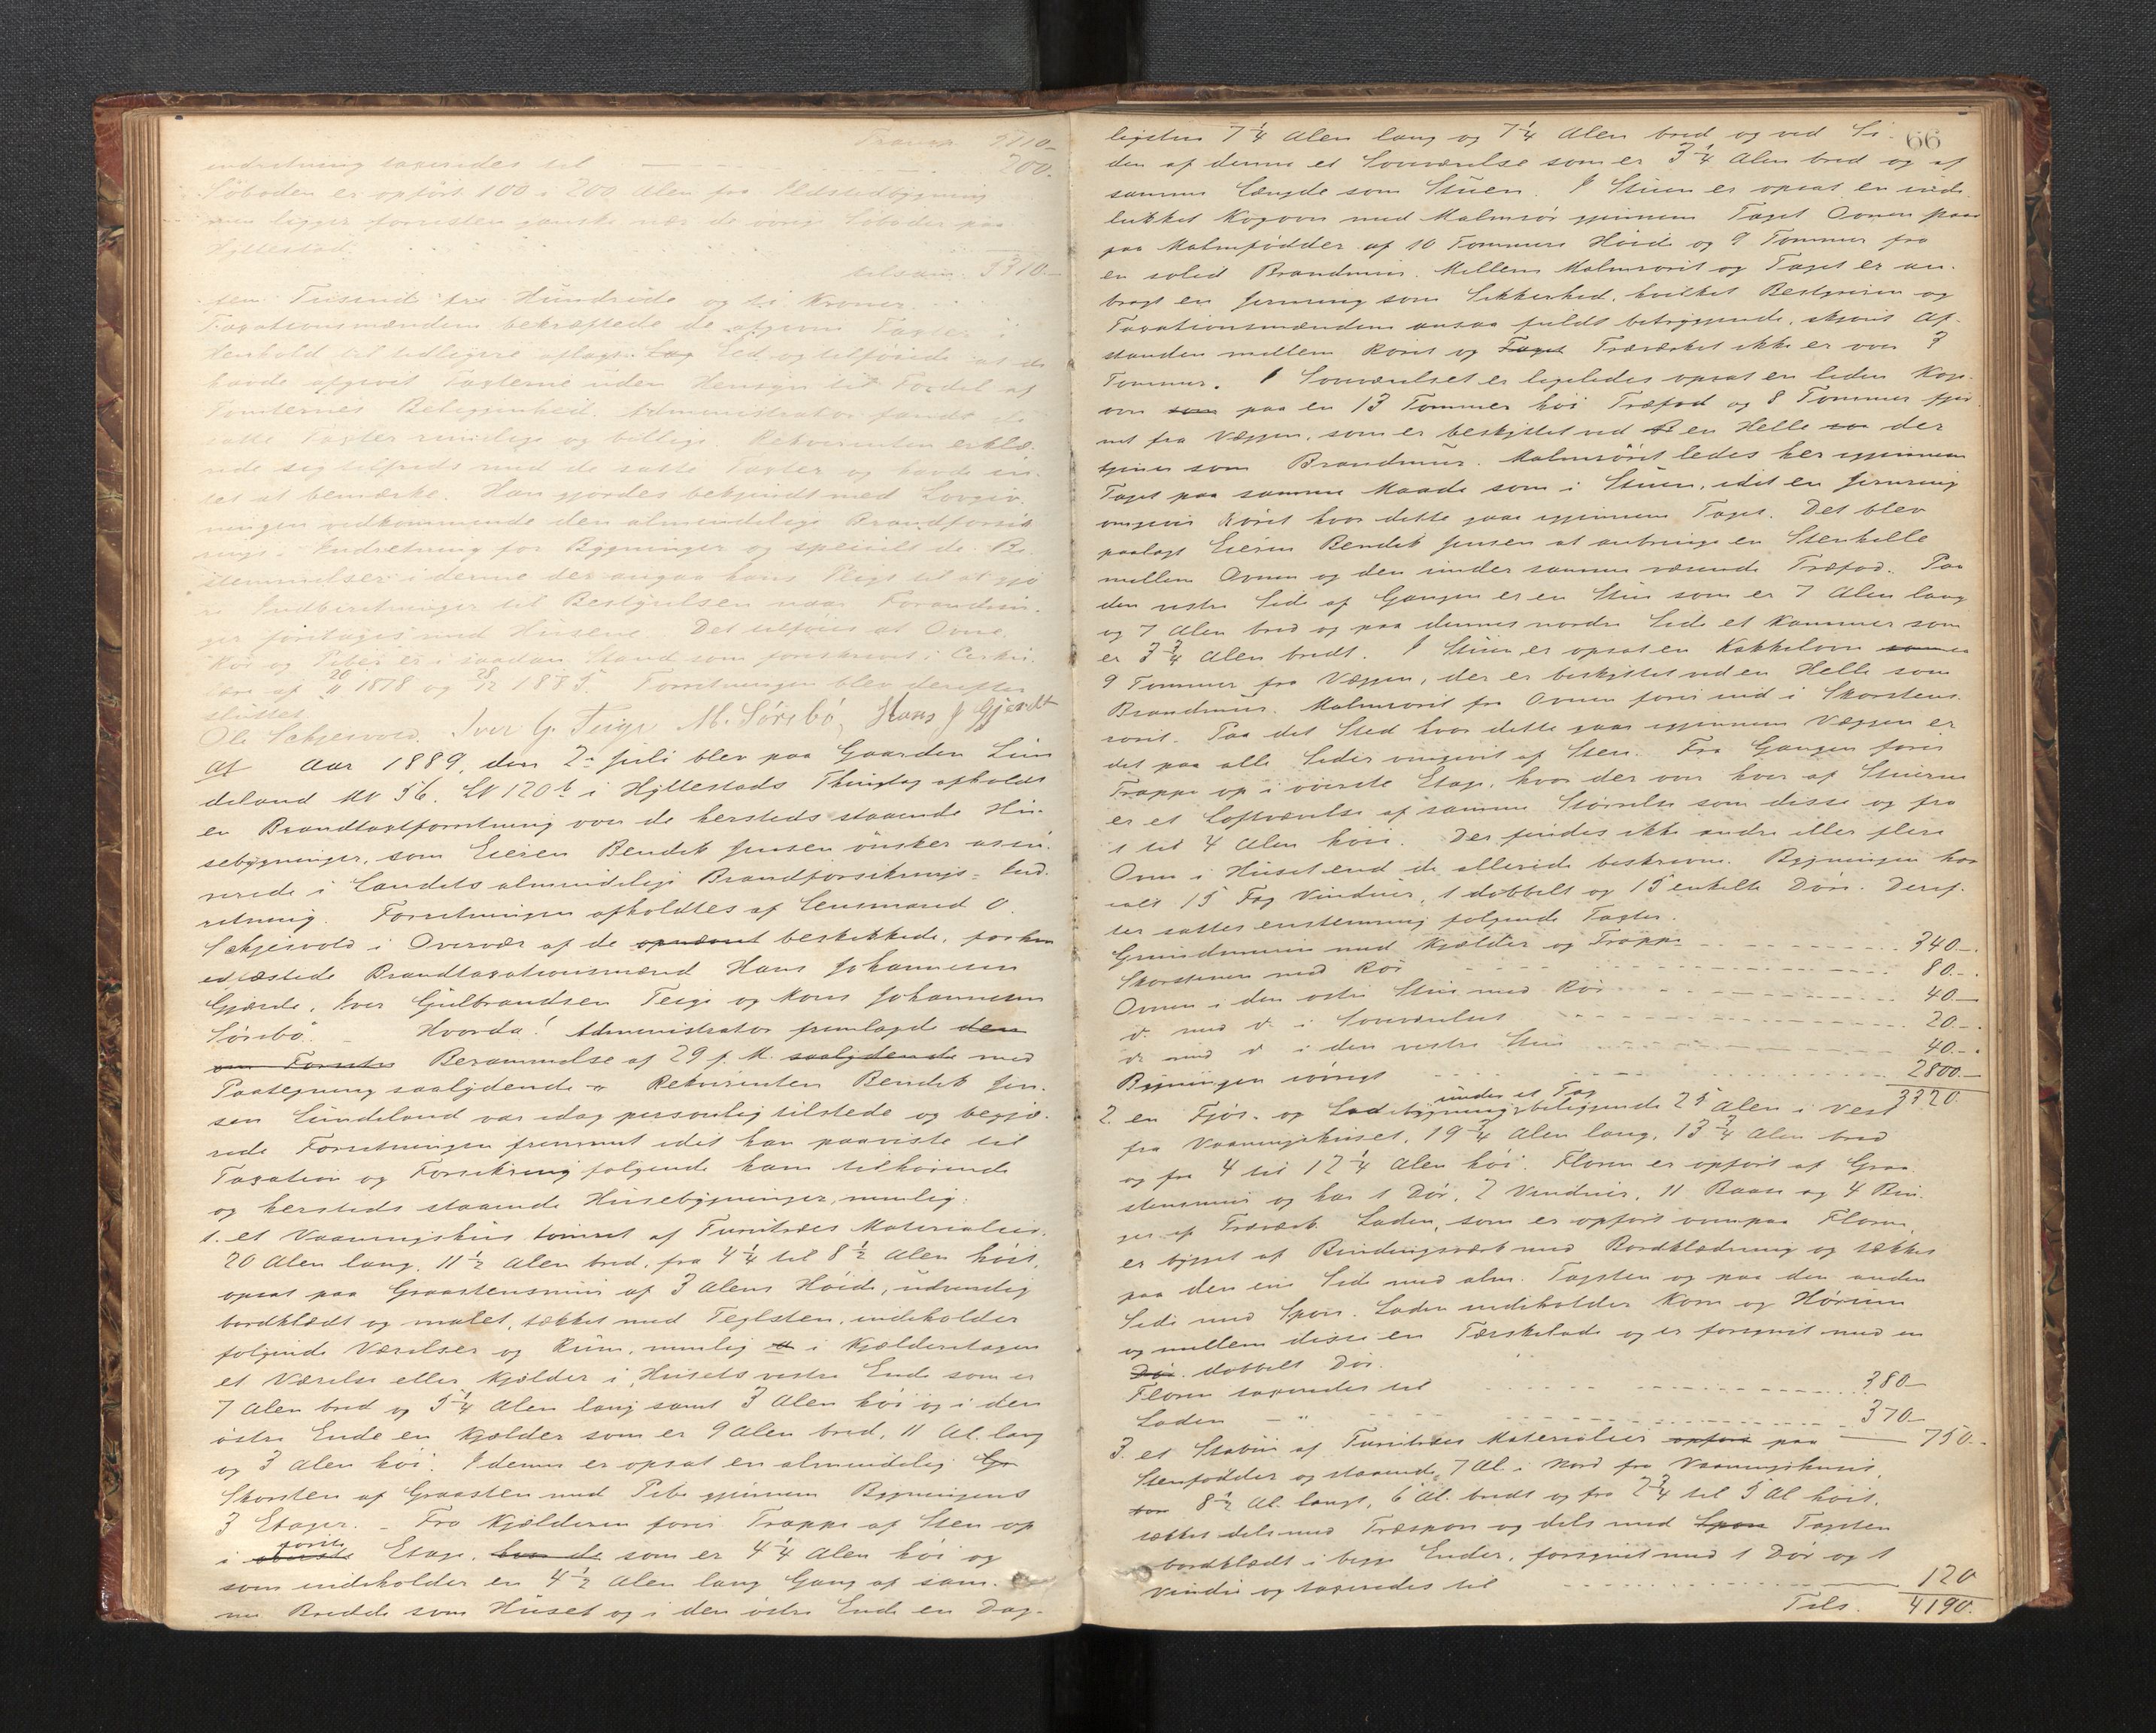 Transp. 5110.-
indretning taxeredes til - - - 200.-
Søboden er opført 100 à 200 Alen fra Ildstedbygning
men ligger forresten ganske nær de øvrige Søboder paa
Hyllestad.
tilsam. 5310.-
fem Tusend tre Hundrede og ti Kroner.
Taxationsmændene bekræftede de afgivne Taxter i
Henhold til tidligere aflagt Eed og tilføiede at de
havde afgivet Taxterne uden Hensyn til Fordel af
Tomternes Beliggenhed. Administrator fandt de
satte Taxter rimelige og billige. Rekvirenten erklæ-
rede sig tilfreds med de satte Taxter og havde in-
tet at bemærke. Han gjordes bekjendt med Lovgiv-
ningen vedkommende den almindelige Brandforsik
rings-Indretning for Bygninger og specielt de Be-
stemmelser i denne der angaa hans Pligt til at gjø
re Indberetninger til Bestyrelsen naar Forandrin-
ger foretages med Husene. Det tilføies at Ovne,
Rør og Piber er i saadan Stand som foreskrevet i Cirku-
lære af 20/11 1878 og 28/12 1885. Forretningen blev derefter
sluttet.
Ole Schjesvold. Iver G. Teige M. Sørebø, Hans J Gjerde
Af Aar 1889, den 2. Juli blev paa Gaarden Lun
deland MN 56. LN 120b i Hyllestads Thinglag afholdt
en Brandtaxtforretning over de hersteds staaende Hu-
sebygninger, som Eieren Bendik Jensen ønsker assu-
rerede i Landets almindelige Brandforsikrings-Ind-
retning. Forretningen afholdtes af Lensmand O.
Schjesvold i Overvær af de opnævnt beskikkede, forhen
edfæstede Brandtaxationsmænd Hans Johannesen
Gjerde, Iver Gulbrandsen Teige og Mons Johannesen
Sørebø. - Hvorda! Administrator fremlagde den
om Forretn Berammelse af 29 f. M. saalydende med
Paategning saalydende - Rekvirenten Bendik Jen-
sen Lundeland var idag personlig tilstede og begjæ-
rede Forretningen fremmet idet han paaviste til
Taxation og Forsikring følgende ham tilhørende
og hersteds staaende Husebygninger, nemlig:
1. et Vaaningshus tømret af Furutræes Materialier.
20 Alen lang, 11 1/2 Alen bred, fra 4 1/4 til 8 1/2 Alen høit,
opsat paa Graastensmur af 3 Alens Høide, udvendig
bordklædt og malet, tækket med Teglsten, indeholder
følgende Værelser og Rum, nemlig a i Kjælderetagen
et Værelse eller Kjælder i Husets vestre Ende som er
7 Alen bred og 5 1/4 Alen lang samt 3 Alen høi og i den
østre Ende en Kjælder som er 9 Alen bred, 11 Al. lang
og 3 Alen høi. I denne er opsat en almindelig Gr
Skorsten af Graasten med Pibe gjennem Bygningens
3 Etager. - Fra Kjælderen fører Trappe af Sten op
i øverste første Etage, hvor de som er 4 1/4 Alen høi og
som indeholder en 4 1/2 Alen lang Gang af sam-
me Bredde som Huset og i den østre Ende en Dag-
66
ligstue 7 1/4 Alen lang og 7 1/4 Alen bred og ved Si-
den af denne et Soveværelse som er 3 1/4 Alen bred og af
samme Længde som Stuen. I Stuen er opsat en inde
lukket Kogovn med Malmrør gjennem Taget Ovnen staar
paa Malmfødder af 10 Tommers Høide og 9 Tommer fra
en solid Brandmur. Mellem Malmrøret og Taget er an-
bragt en Jernring som Sikkerhed, hvilket Bestyreren og
Taxationsmændene ansaa fuldt betryggende, skjønt Af-
standen mellem Røret og Taget Træværket ikke er over 3
Tommer. I Soveværelset er ligeledes opsat en liden Kog-
ovn som paa en 13 Tommer høi Træfod og 8 Tommer fjer
net fra Væggen, som er beskyttet ved en Helle der
tjener som Brandmur. Malmrøret ledes her gjennem
Taget paa samme Maade som i Stuen, idet en Jernring
omgiver Røret hvor dette gaar gjennem Taget. Det blev
paalagt Eieren Bendik Jensen at anbringe en Stenhelle
mellem Ovnen og den under samme værende Træfod. Paa
den vestre Side af Gangen er en Stue som er 7 Alen lang
og 7 Alen bred og paa dennes nordre Side et Kammer som
er 3 3/4 Alen bredt. I Stuen er opsat en Kakkelovn som er
9 Tommer fra Væggen, der er beskyttet ved en Helle som
Brandmur. Malmrøret fra Ovnen føres ind i Skorstens-
røret. Paa det Sted hvor dette gaar gjennem Væggen er
det paa alle Sider omgivet af Sten. Fra Gangen fører
Trappe op i øverste Etage, hvor der over hver af Stuerne
er et Loftværelse af samme Størrelse som disse og fra
1 til 4 Alen høie. Der findes ikke andre eller flere
Ovne i Huset end de allerede beskrevne. Bygningen har
ialt 15 Fag Vinduer, 1 dobbelt og 15 enkelte Døre. Deref-
ter sattes enstemmig følgende Taxter.
Grundmuren med Kjælder og Trappe - - - 340.-
Skorstenen med Rør - - - 80.-
Ovnen i den østre Stue med Rør - - - 40.-
do med do i Soveværelset - - - 20.-
do med do i den vestre Stue - - - 40.-
Bygningen iøvrigt - - - 2800.-
3320.
2. en Fjøs- og Ladebygning under et Tag beliggende 25 Alen i Vest
fra Vaaningshuset, 19 3/4 Alen lang, 13 3/4 Alen bred
og fra 4 til 12 1/4 Alen høi. Floren er opført af Graa-
stensmur og har 1 Dør, 2 Vinduer, 11 Baase og 4 Bin-
ger af Træværk. Laden, som er opført ovenpaa Floren,
er bygget af Bindingsværk med Bordklædning og tækket
paa den ene Side med alm. Tagsten og paa den anden
Side med Spon. Laden indeholder Korn og Hørum
og mellem disse en Tærskelade og er forsynet med en
Dør. dobbelt Dør.
Floren taxeredes til - - - 380.-
Laden - " - - - 370.-
750.-
3. et Stabur af Furutræes Materialier opført paa
Stenfødder og staaende 7 Al. i Nord fra Vaaningshuset,
8 1/2 Al. langt, 6 Al. bredt og fra 2 3/4 til 5 Al høit,
tækket dels med Træspon og dels med Spon Tagsten
bordklædt i begge Ender, forsynet med 1 Dør og 1
Vindu og taxeredes til - - - 120
Tils. 4190.